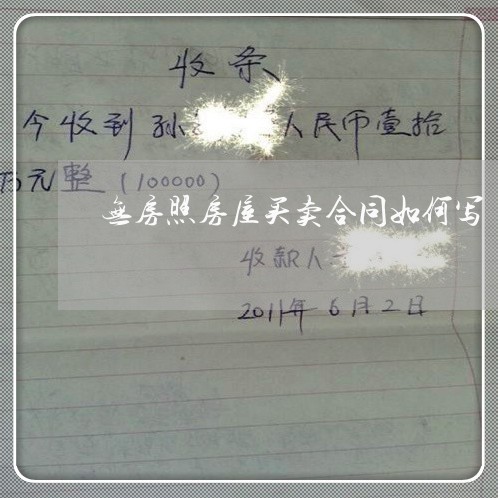 收条
今收到孙 人民币壹拾
万元整(100000)
無房照房屋买卖合同如何写
收款人
2011年6月2日